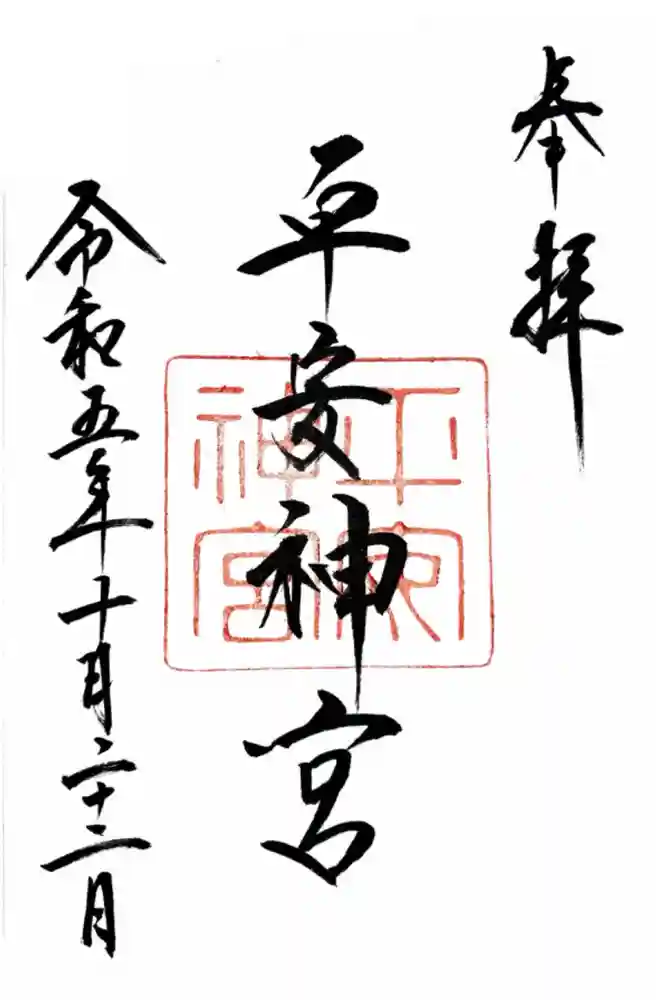 奉拝
平安神宮
令和五年十月二十二日
平安
神宮